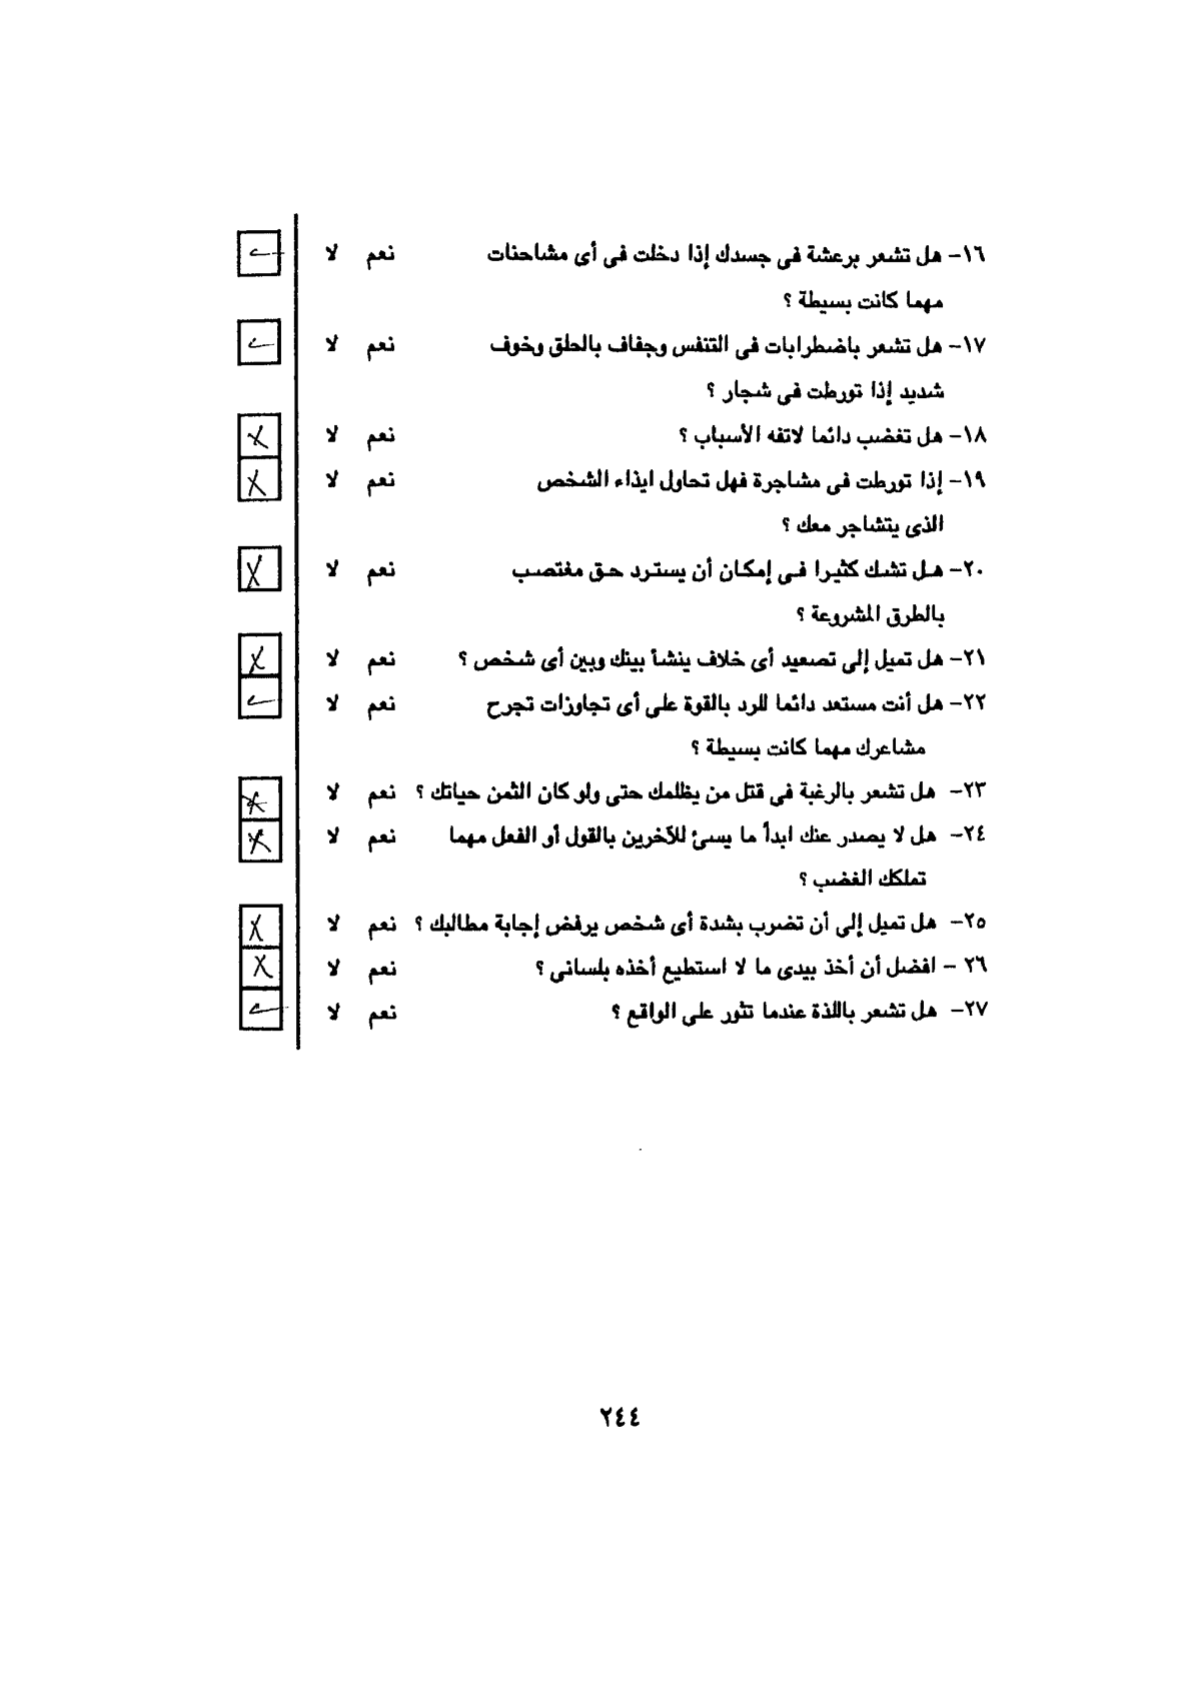 ١٦- هل تشعر برعشة فى جسدك إذا دخلت فى أى مشاحنات نعم لا
مهما كانت بسيطة ؟
١٧- هل تشعر باضطرابات فى التنفس وجفاف بالحلق وخوف نعم لا
شديد إذا تورطت فى شجار ؟
١٨- هل تغضب دائما لاتفه الأسباب ؟ نعم لا X
١٩- إذا تورطت فى مشاجرة فهل تحاول ايذاء الشخص نعم لا X
الذى يتشاجر معك ؟
٢٠- هل تشك كثيرا فى إمكان أن يسترد حق مغتصب نعم لا X
بالطرق المشروعة ؟
٢١- هل تميل إلى تصعيد أى خلاف ينشأ بينك وبين أى شخص ؟ نعم لا X
٢٢- هل أنت مستعد دائما للرد بالقوة على أى تجاوزات تجرح نعم لا
مشاعرك مهما كانت بسيطة ؟
٢٣- هل تشعر بالرغبة فى قتل من يظلمك حتى ولو كان الثمن حياتك ؟ نعم لا X
٢٤- هل لا يصدر عنك ابدأ ما يسئ للآخرين بالقول أو الفعل مهما نعم لا X
تملكك الغضب ؟
٢٥- هل تميل إلى أن تضرب بشدة أى شخص يرفض إجابة مطالبك ؟ نعم لا X
٢٦ - افضل أن أخذ بيدى ما لا استطيع أخذه بلسانى ؟ نعم لا X
٢٧- هل تشعر باللذة عندما تثور على الواقع ؟ نعم لا
٢٤٤